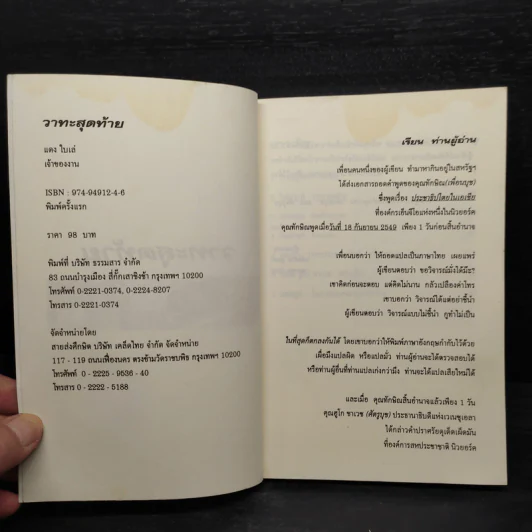 วาทะสุดท้าย
แดง ใบเล่
เจ้าของงาน
ISBN : 974-94912-4-6
พิมพ์ครั้งแรก
ราคา 98 บาท
พิมพ์ที่ บริษัท ธรรมสาร จำกัด
83 ถนนบำรุงเมือง สี่กั๊กเสาชิงช้า กรุงเทพฯ 10200
โทรศัพท์ 0-2221-0374, 0-2224-8207
โทรสาร 0-2221-0374
จัดจำหน่ายโดย
สายส่งศึกษิต บริษัท เคล็ดไทย จำกัด จัดจำหน่าย
117 - 119 ถนนเฟื่องนคร ตรงข้ามวัดราชบพิธ กรุงเทพฯ 10200
โทรศัพท์ 0 - 2225 - 9536 - 40
โทรสาร 0 - 2222 - 5188
เรียน ท่านผู้อ่าน
เพื่อนคนหนึ่งของผู้เขียน ทำมาหากินอยู่ในสหรัฐฯ
ได้ส่งเอกสารถอดคำพูดของคุณทักษิณ(เพื่อนบุช)
ซึ่งพูดเรื่อง ประชาธิปไตยในเอเชีย
ที่องค์กรเอ็นจีโอแห่งหนึ่งในนิวยอร์ค
คุณทักษิณพูดเมื่อวันที่ 18 กันยายน 2549 เพียง 1 วันก่อนสิ้นอำนาจ
เพื่อนบอกว่า ให้ถอดแปลเป็นภาษาไทย เผยแพร่
ผู้เขียนตอบว่า ขอวิจารณ์มั่งได้มั๊ะ?
เขาคิดก่อนจะตอบ แต่คิดไม่นาน กลัวเปลืองค่าโทร
เขาบอกว่า วิจารณ์ได้แต่อย่าชี้นำ
ผู้เขียนตอบว่า วิจารณ์แบบไม่ชี้นำ กูทำไม่เป็น
ในที่สุดก็ตกลงกันได้ โดยเขาบอกว่าให้พิมพ์ภาษาอังกฤษกำกับไว้ด้วย
เผื่อมึงแปลผิด หรือแปลมั่ว ท่านผู้อ่านจะได้ตรวจสอบได้
หรือท่านผู้อื่นที่ท่านแปลเก่งกว่ามึง ท่านจะได้แปลเสียใหม่ได้
และเมื่อ คุณทักษิณสิ้นอำนาจแล้วเพียง 1 วัน
คุณฮูโก ชาเวซ (ศัตรูบุช) ประธานาธิบดีแห่งเวเนซูเอลา
ได้กล่าวคำปราศรัยดุเด็ดเผ็ดมัน
ที่องค์การสหประชาชาติ นิวยอร์ค